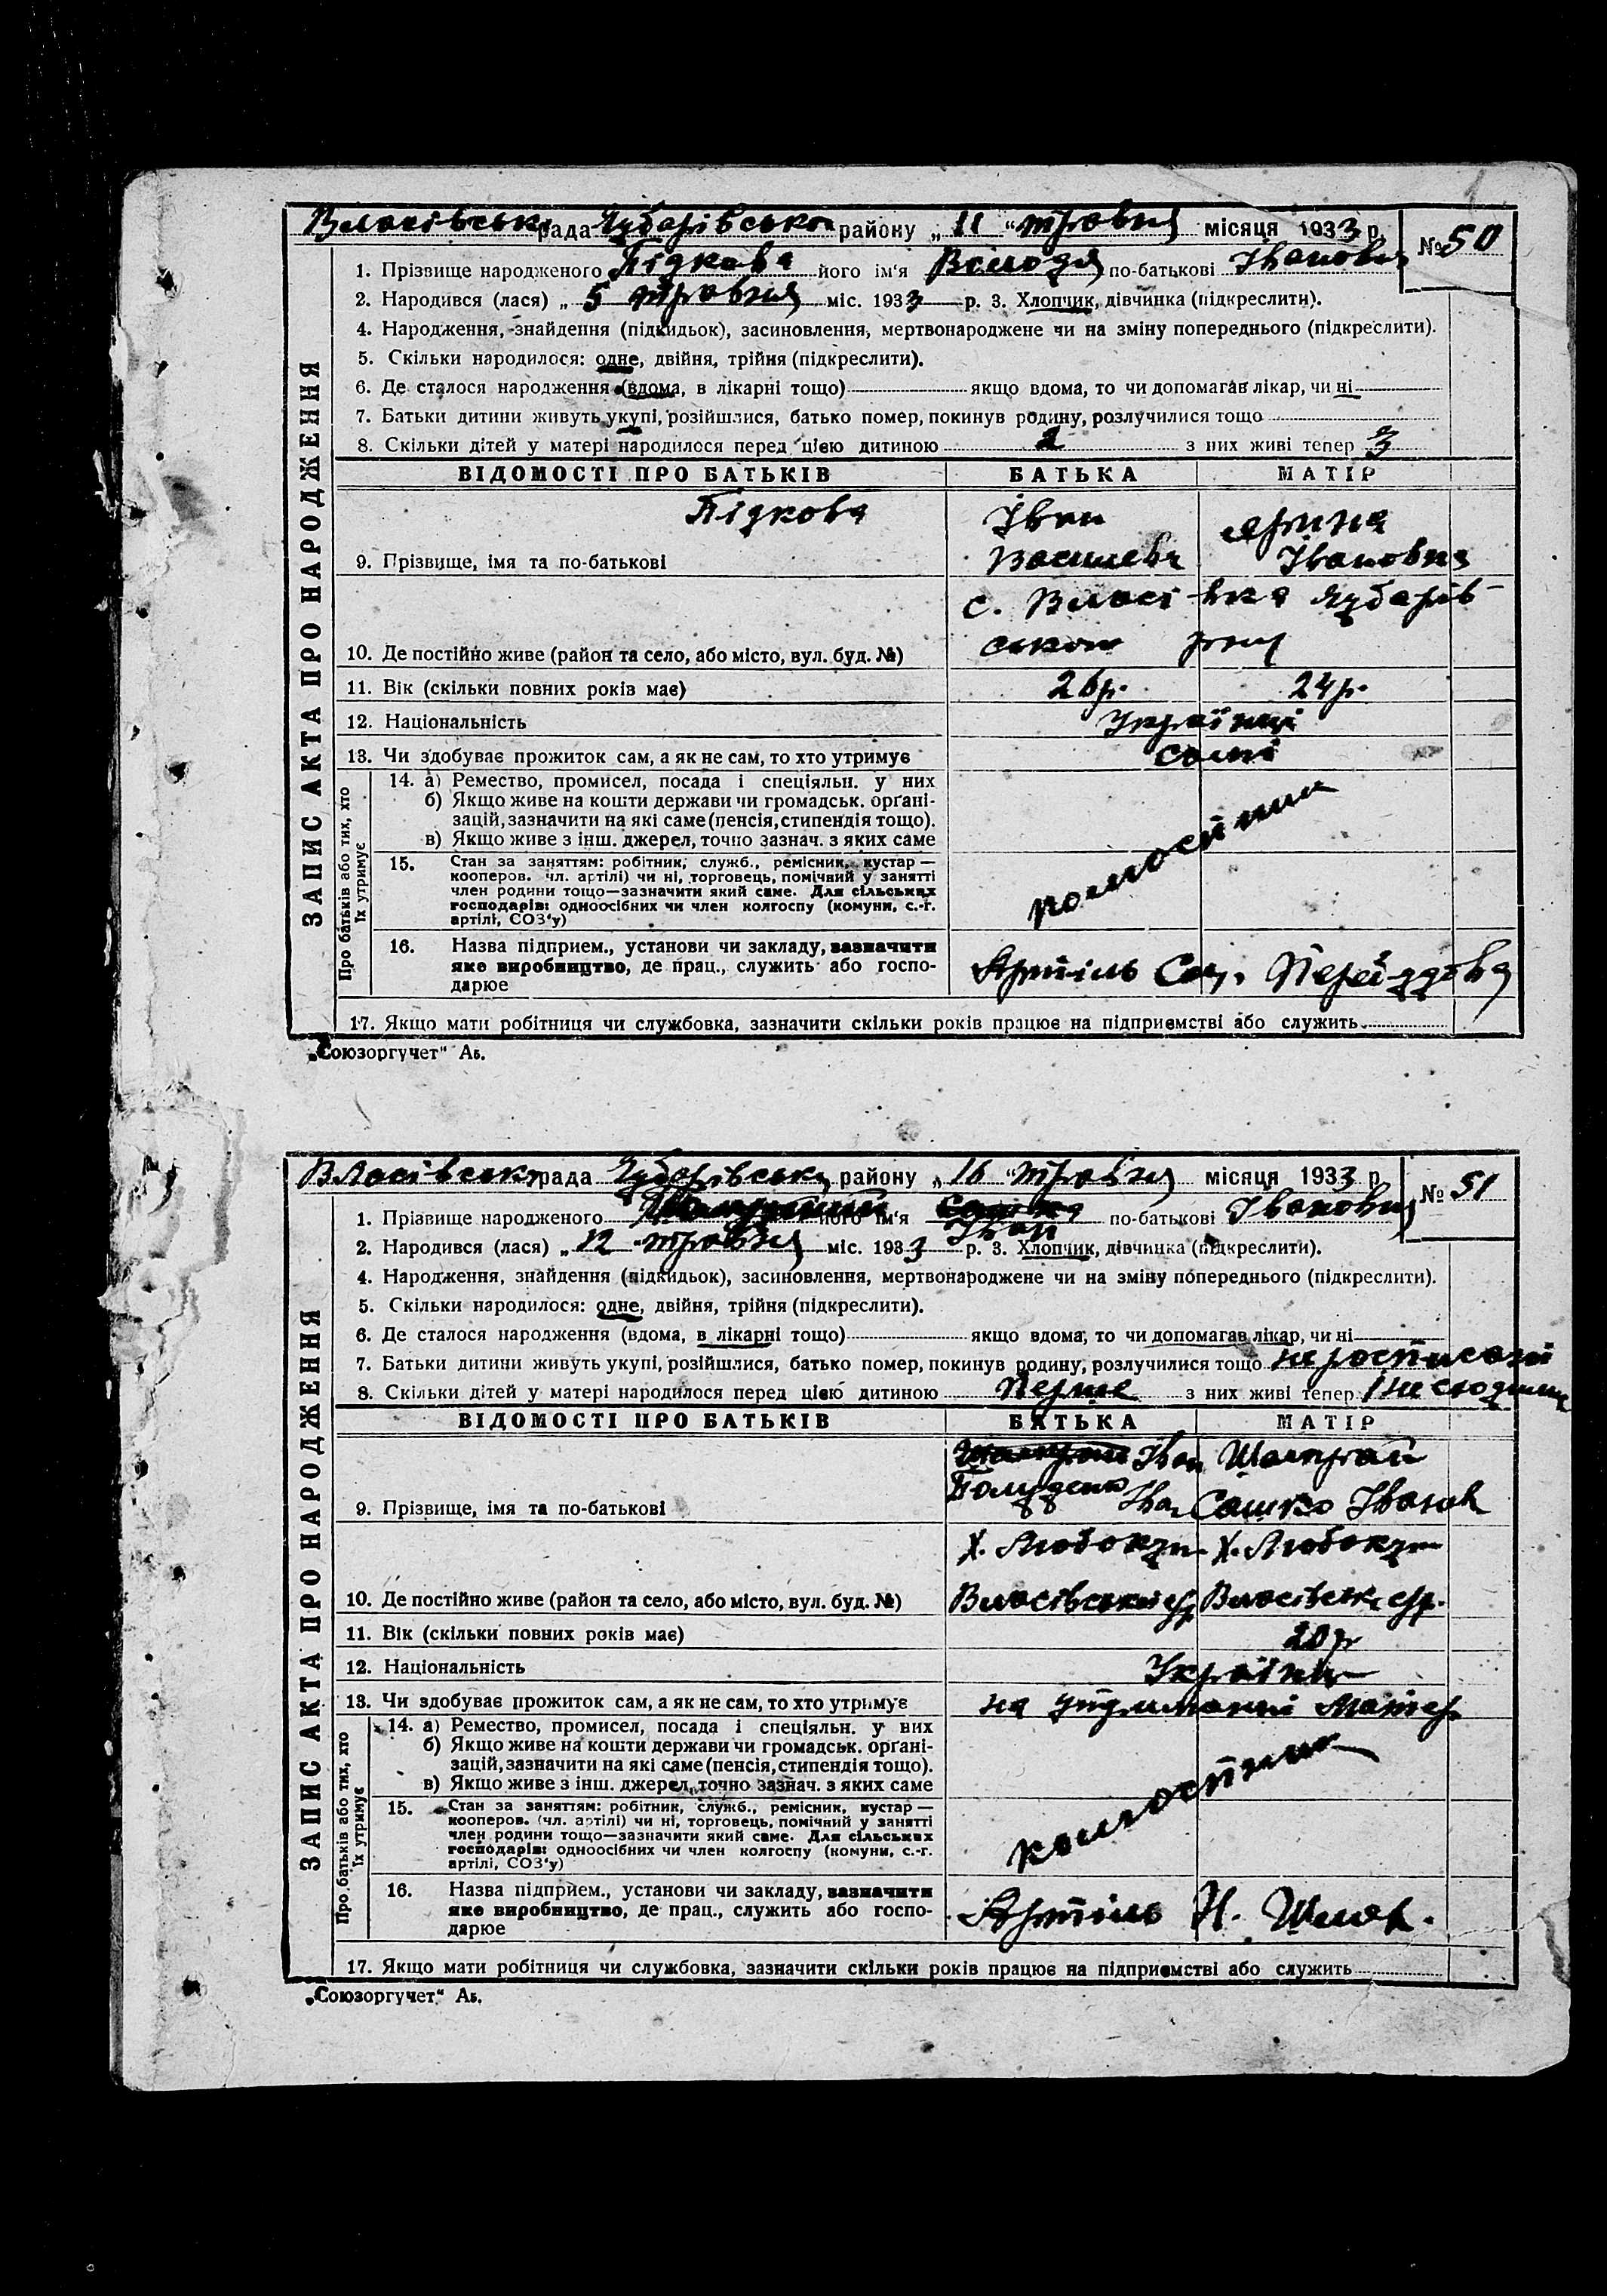 Власівська рада Чубарівського району „ 11 “ травня місяця 1933 р. № 50
ЗАПИС АКТА ПРО НАРОДЖЕННЯ
1. Прізвище народженого Підкова його ім'я Володя по-батькові Іванович
2. Народився (лася) „ 5 травня міс. 1933 р. 3. Хлопчик, дівчинка (підкреслити).
4. Народження, знайдення (підкидьок), засиновлення, мертвонароджене чи на зміну попереднього (підкреслити).
5. Скільки народилося: одне, двійня, трійня (підкреслити).
6. Де сталося народження (вдома, в лікарні тощо) якщо вдома, то чи допомагав лікар, чи ні
7. Батьки дитини живуть укупі, розійшлися, батько помер, покинув родину, розлучилися тощо
8. Скільки дітей у матері народилося перед цією дитиною 2 з них живі тепер 3
ВІДОМОСТІ ПРО БАТЬКІВ БАТЬКА МАТІР
Підкова Іван Ярина
9. Прізвище, імя та по-батькові Васильевич Івановна
с. Власівка Чубарів-
10. Де постійно живе (район та село, або місто, вул. буд. №) ського рону
11. Вік (скільки повних років має) 26 р. 24 р.
12. Національність Українці
13. Чи здобуває прожиток сам, а як не сам, то хто утримує самі
Про батьків або тих, хто їх утримує
14. а) Ремество, промисел, посада і спеціяльн. у них
б) Якщо живе на кошти держави чи громадськ. орґані-
зацій, зазначити на які саме (пенсія, стипендія тощо).
в) Якщо живе з інш. джерел, точно зазнач. з яких саме
15. Стан за заняттям: робітник, служб., ремісник, кустар —
кооперов. (чл. артілі) чи ні, торговець, помічний у занятті
член родини тощо—зазначити який саме. Для сільських
господарів: одноосібних чи член колгоспу (комуни, с.-г.
артілі, СОЗ'у)
колгоспник
16. Назва підприєм., установи чи закладу, зазначити
яке виробництво, де прац., служить або госпо-
дарює
Артіль Соц. Перебудова
17. Якщо мати робітниця чи службовка, зазначити скільки років працює на підприємстві або служить
„Союзоргучет“ Аб.
Власівська рада Чубарівська району „ 16 “ травня місяця 1933 р. № 51
ЗАПИС АКТА ПРО НАРОДЖЕННЯ
1. Прізвище народженого його ім'я Іван по-батькові Іванович
2. Народився (лася) „ 12 “ травня міс. 1933 р. 3. Хлопчик, дівчинка (підкреслити).
4. Народження, знайдення (підкидьок), засиновлення, мертвонароджене чи на зміну попереднього (підкреслити).
5. Скільки народилося: одне, двійня, трійня (підкреслити).
6. Де сталося народження (вдома, в лікарні тощо) якщо вдома, то чи допомагав лікар, чи ні
7. Батьки дитини живуть укупі, розійшлися, батько помер, покинув родину, розлучилися тощо не росписані
8. Скільки дітей у матері народилося перед цією дитиною Перше з них живі тепер 1
ВІДОМОСТІ ПРО БАТЬКІВ БАТЬКА МАТІР
Іван Шампрай
9. Прізвище, імя та по-батькові Іван Сашко Іванов
х. Любокут х. Любокут
10. Де постійно живе (район та село, або місто, вул. буд. №) Власівської с/р Власівськ. с/р.
11. Вік (скільки повних років має) 20 р
12. Національність Українці
13. Чи здобуває прожиток сам, а як не сам, то хто утримує на утриманні Матер.
Про батьків або тих, хто їх утримує
14. а) Ремество, промисел, посада і спеціяльн. у них
б) Якщо живе на кошти держави чи громадськ. орґані-
зацій, зазначити на які саме (пенсія, стипендія тощо).
в) Якщо живе з інш. джерел, точно зазнач. з яких саме
15. Стан за заняттям: робітник, служб., ремісник, кустар —
кооперов. (чл. артілі) чи ні, торговець, помічний у занятті
член родини тощо—зазначити який саме. Для сільських
господарів: одноосібних чи член колгоспу (комуни, с.-г.
артілі, СОЗ'у)
колгоспник
16. Назва підприєм., установи чи закладу, зазначити
яке виробництво, де прац., служить або госпо-
дарює
Артіль Н. Шлях.
17. Якщо мати робітниця чи службовка, зазначити скільки років працює на підприємстві або служить
„Союзоргучет“ Аб.